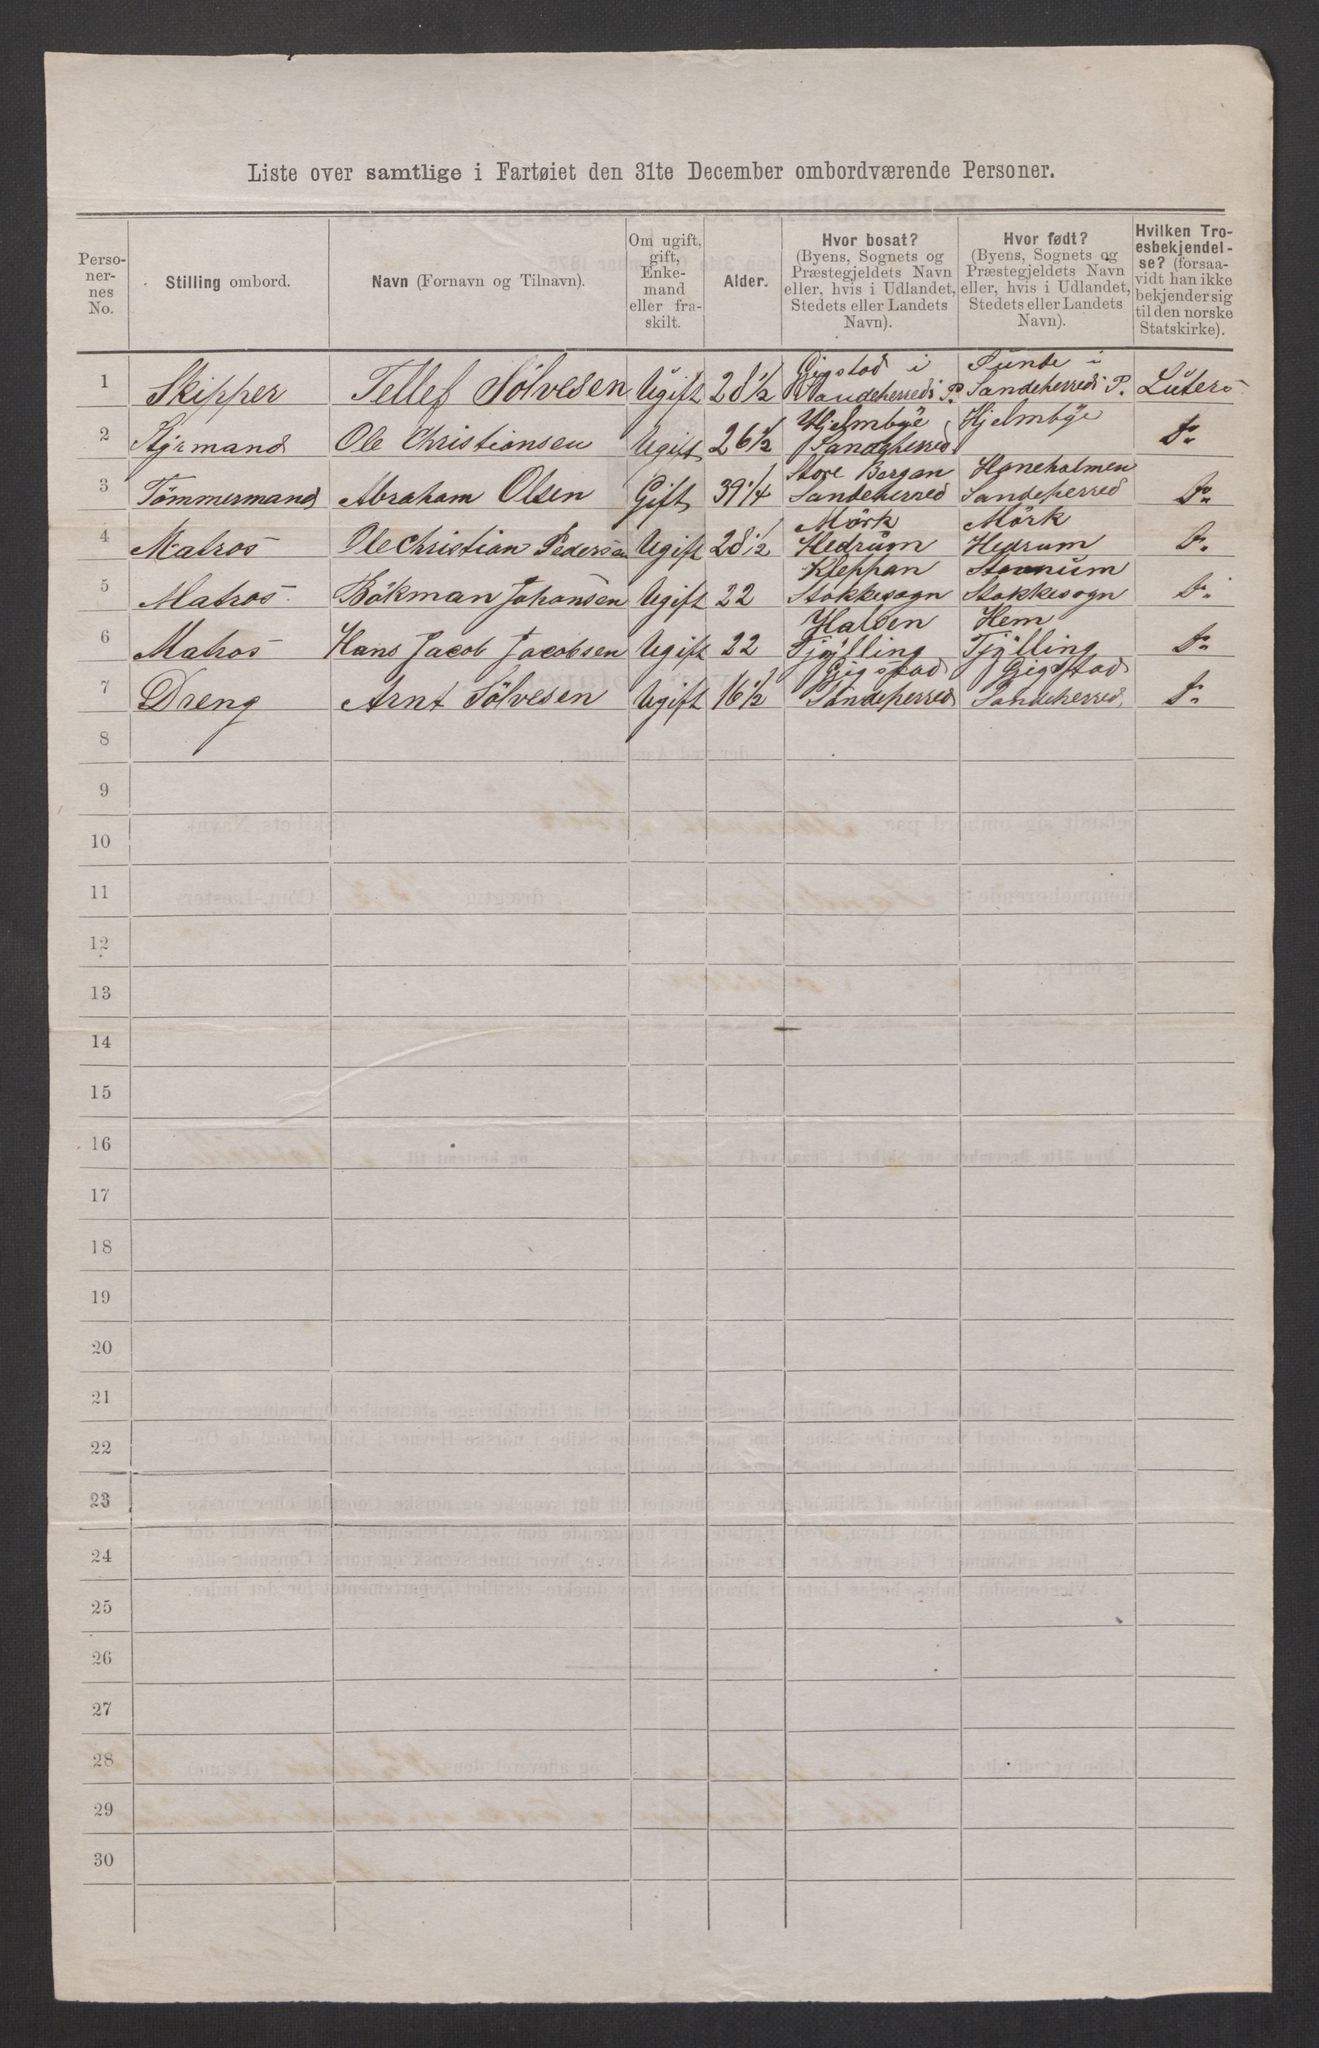 Liste over samtlige i Fartøiet den 31te December ombordværende Personer.
Perso-
ner-
nes
No.
Stilling ombord.
Navn (Fornavn og Tilnavn).
Om ugift,
gift,
Enke-
mand
eller fra-
skilt.
Alder.
Hvor bosat?
(Byens, Sognets og
Præstegjeldets Navn
eller, hvis i Udlandet,
Stedets eller Landets
Navn).
Hvor født?
(Byens, Sognets og
Præstegjeldets Navn
eller, hvis i Udlandet,
Stedets eller Landets
Navn).
Hvilken Tro-
esbekjendel-
se? (forsaa-
vidt han ikke
bekjender sig
til den norske
Statskirke).
1 Skipper Tellef Sölvesen Ugift 28 1/2 Gigstad i Sandeherreds P. i Sandeherreds P. Luters
2 Styrmand Ole Christiansen Ugift 26 1/2 Hjelmbye Sandeherred Hjelmbye Do
3 Tömmermand Abraham Olsen Gift 39 1/4 Store Bergan Sandeherred Haneholmen Sandeherred Do
4 Matros Ole Christian Pedersen Ugift 28 1/2 Mörk Hedrum Mörk Hedrum Do
5 Matros Bökman Johansen Ugift 22 Kleppan Stokkesogn Stokkesogn Do
6 Matros Hans Jacob Jacobsen Ugift 22 Halsen Tjölling Hem Tjölling Do
7 Dreng Arnt Sölvesen Ugift 16 1/2 Gigstad Sandeherred Gigstad Sandeherred Do
8
9
10
11
12
13
14
15
16
17
18
19
20
21
22
23
24
25
26
27
28
29
30